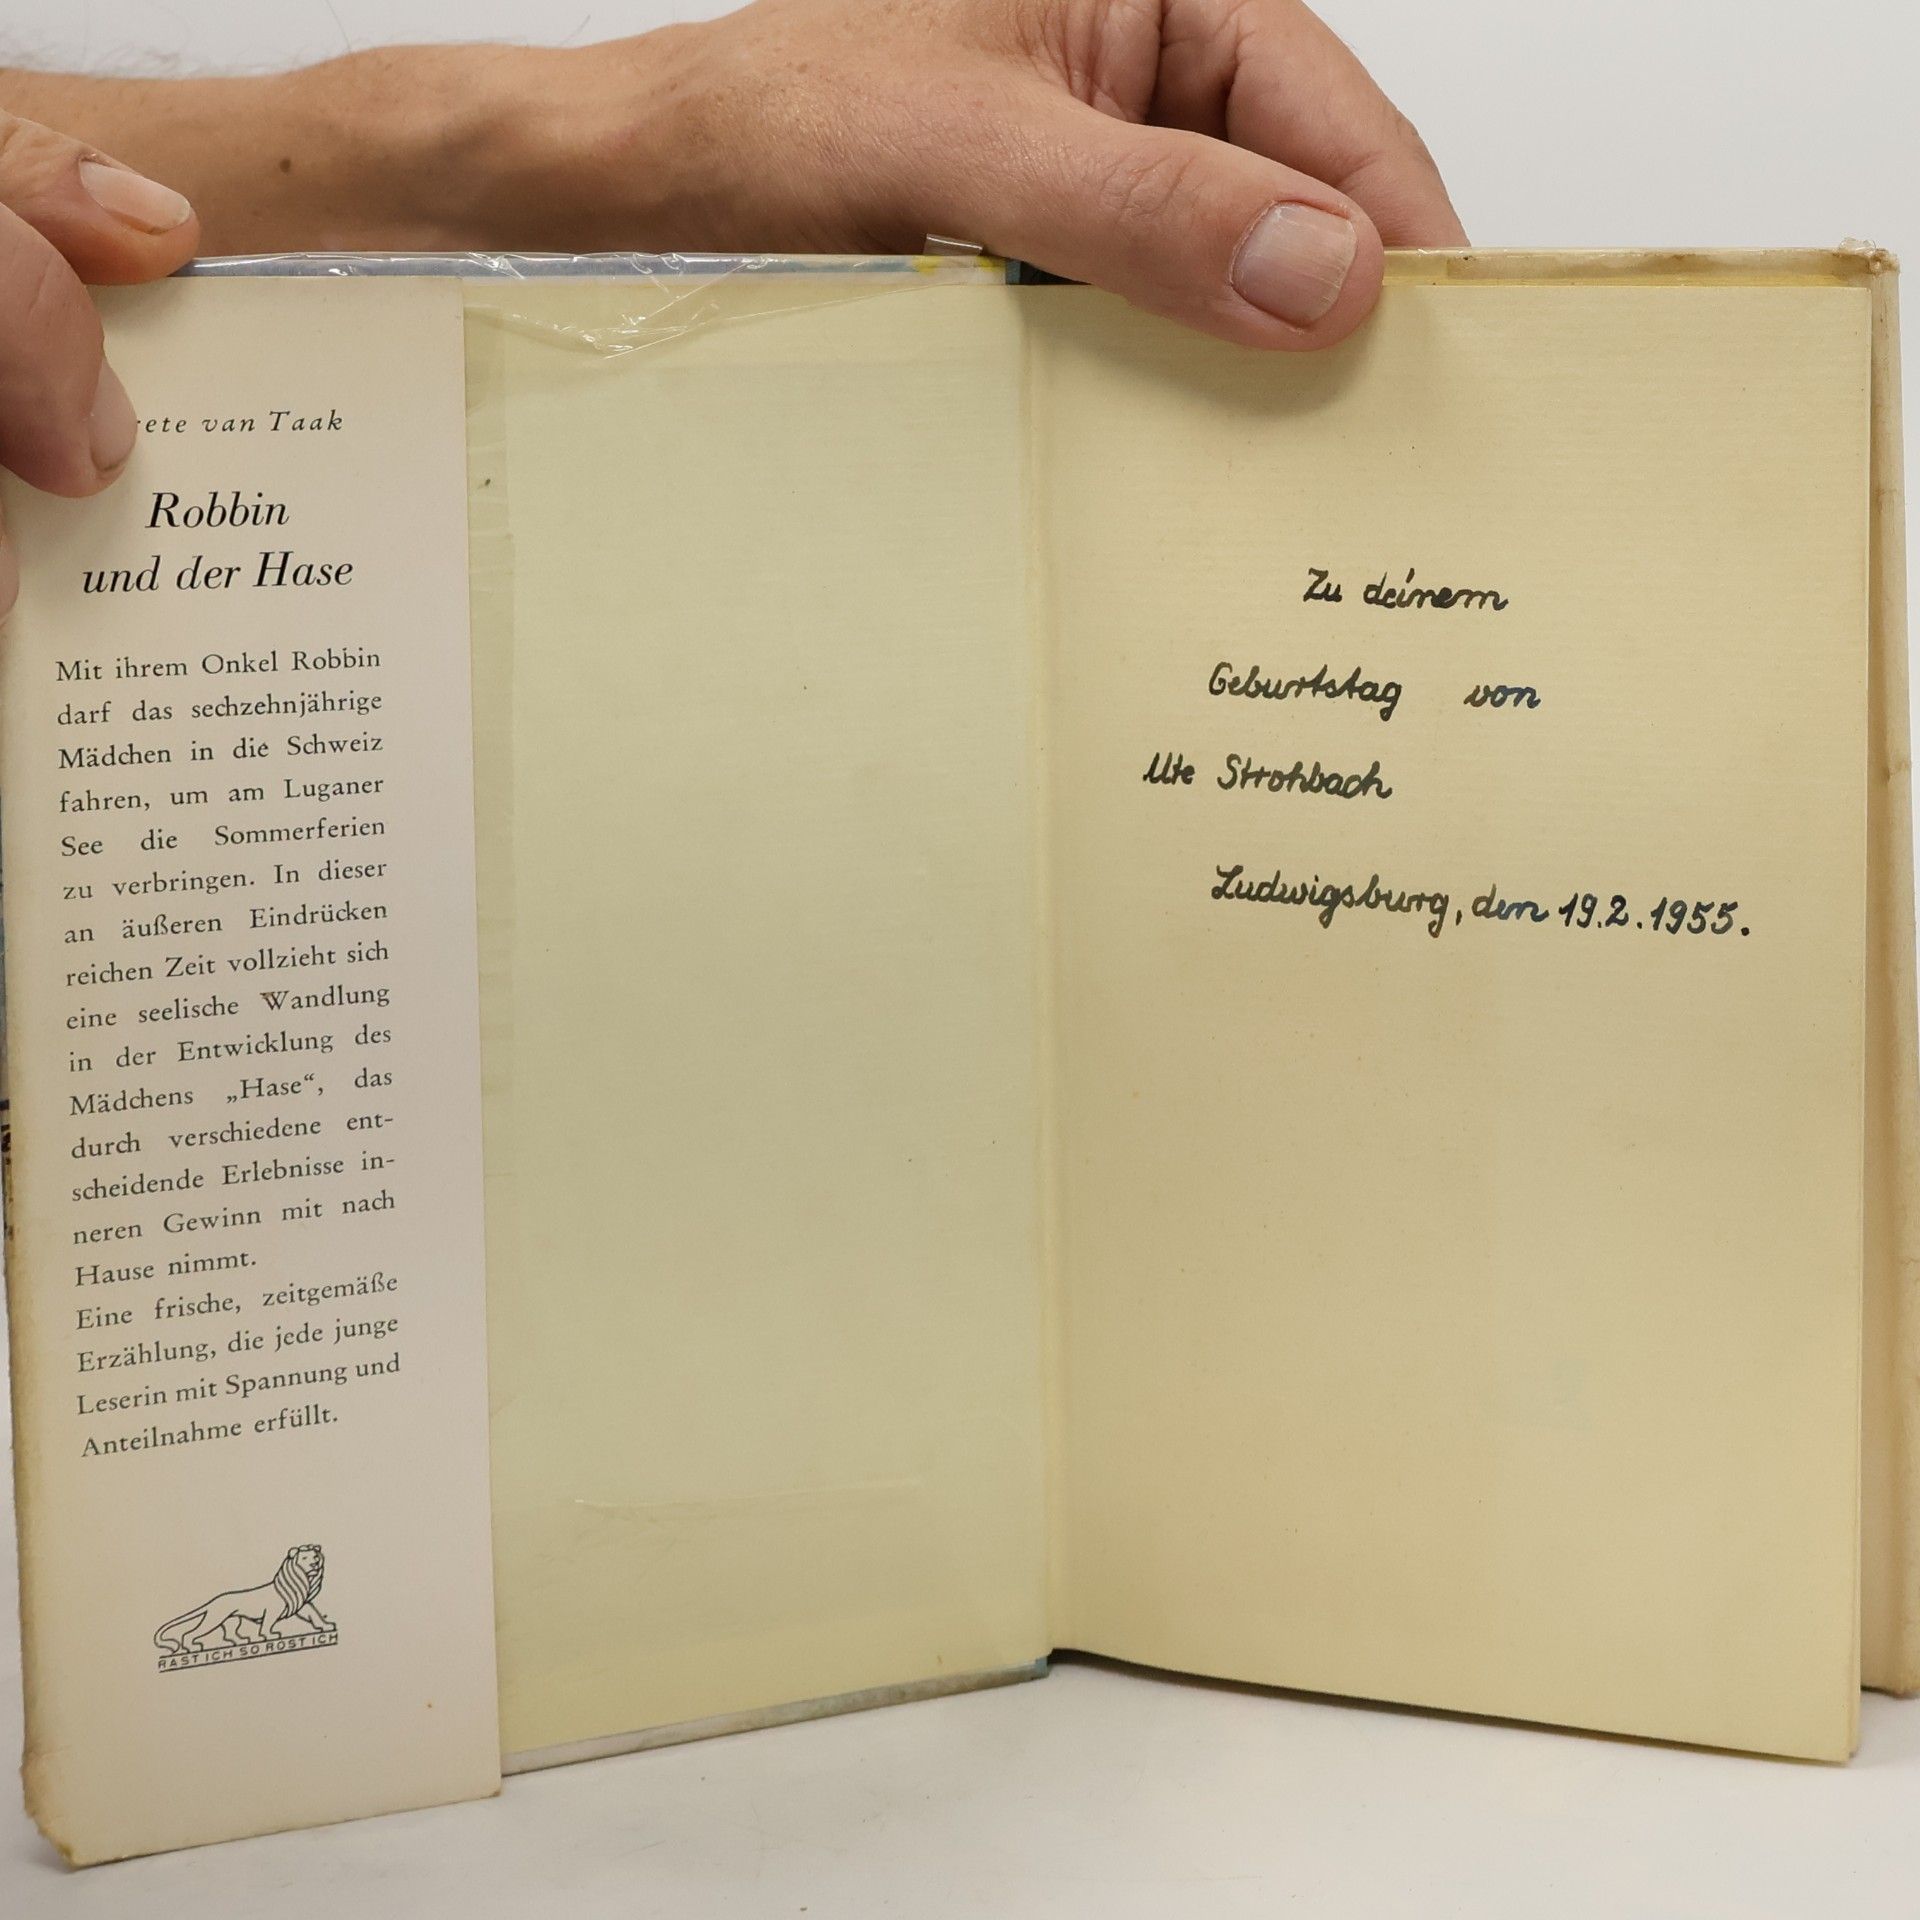 van Taak
Robbin
und der Hase
Mit ihrem Onkel Robbin
darf das sechzehnjährige
Mädchen in die Schweiz
fahren, um am Luganer
See die Sommerferien
zu verbringen. In dieser
an äußeren Eindrücken
reichen Zeit vollzieht sich
eine seelische Wandlung
in der Entwicklung des
Mädchens „Hase“, das
durch verschiedene ent-
scheidende Erlebnisse in-
neren Gewinn mit nach
Hause nimmt.
Eine frische, zeitgemäße
Erzählung, die jede junge
Leserin mit Spannung und
Anteilnahme erfüllt.
RAST ICH SO ROST ICH
Zu deinem
Geburtstag von
Ute Strohbach
Ludwigsburg, den 19.2.1955.